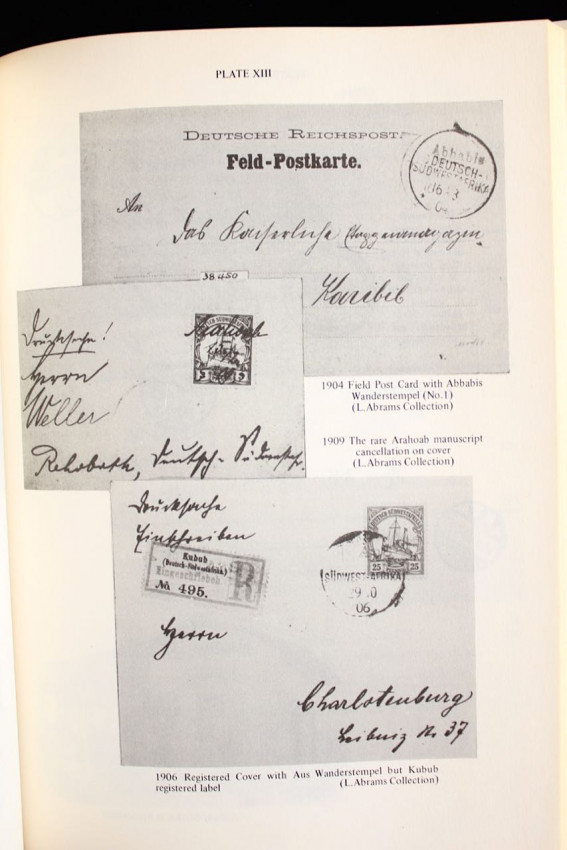 PLATE XIII
DEUTSCHE REICHSPOST
Feld-Postkarte.
Abbabis
DEUTSCH-
SÜDWESTAFRIKA
An
das Kaiserliche
Karibib
38 450
Drucksache!
Herrn
Weller
Rehoboth, Deutsch-Südwestafr.
Arahoab
3 3
1904 Field Post Card with Abbabis
Wanderstempel (No.1)
(L.Abrams Collection)
1909 The rare Arahoab manuscript
cancellation on cover
(L.Abrams Collection)
Drucksache
Einschreiben
Kubub
(Deutsch-Südwestafrika.)
Eingeschrieben
R
№ 495.
DEUTSCH-SÜDWESTAFRIKA
25 25
SÜDWEST-AFRIKA
06
Herrn
Charlotenburg
Leibniz Nr 37
1906 Registered Cover with Aus Wanderstempel but Kubub
registered label (L.Abrams Collection)